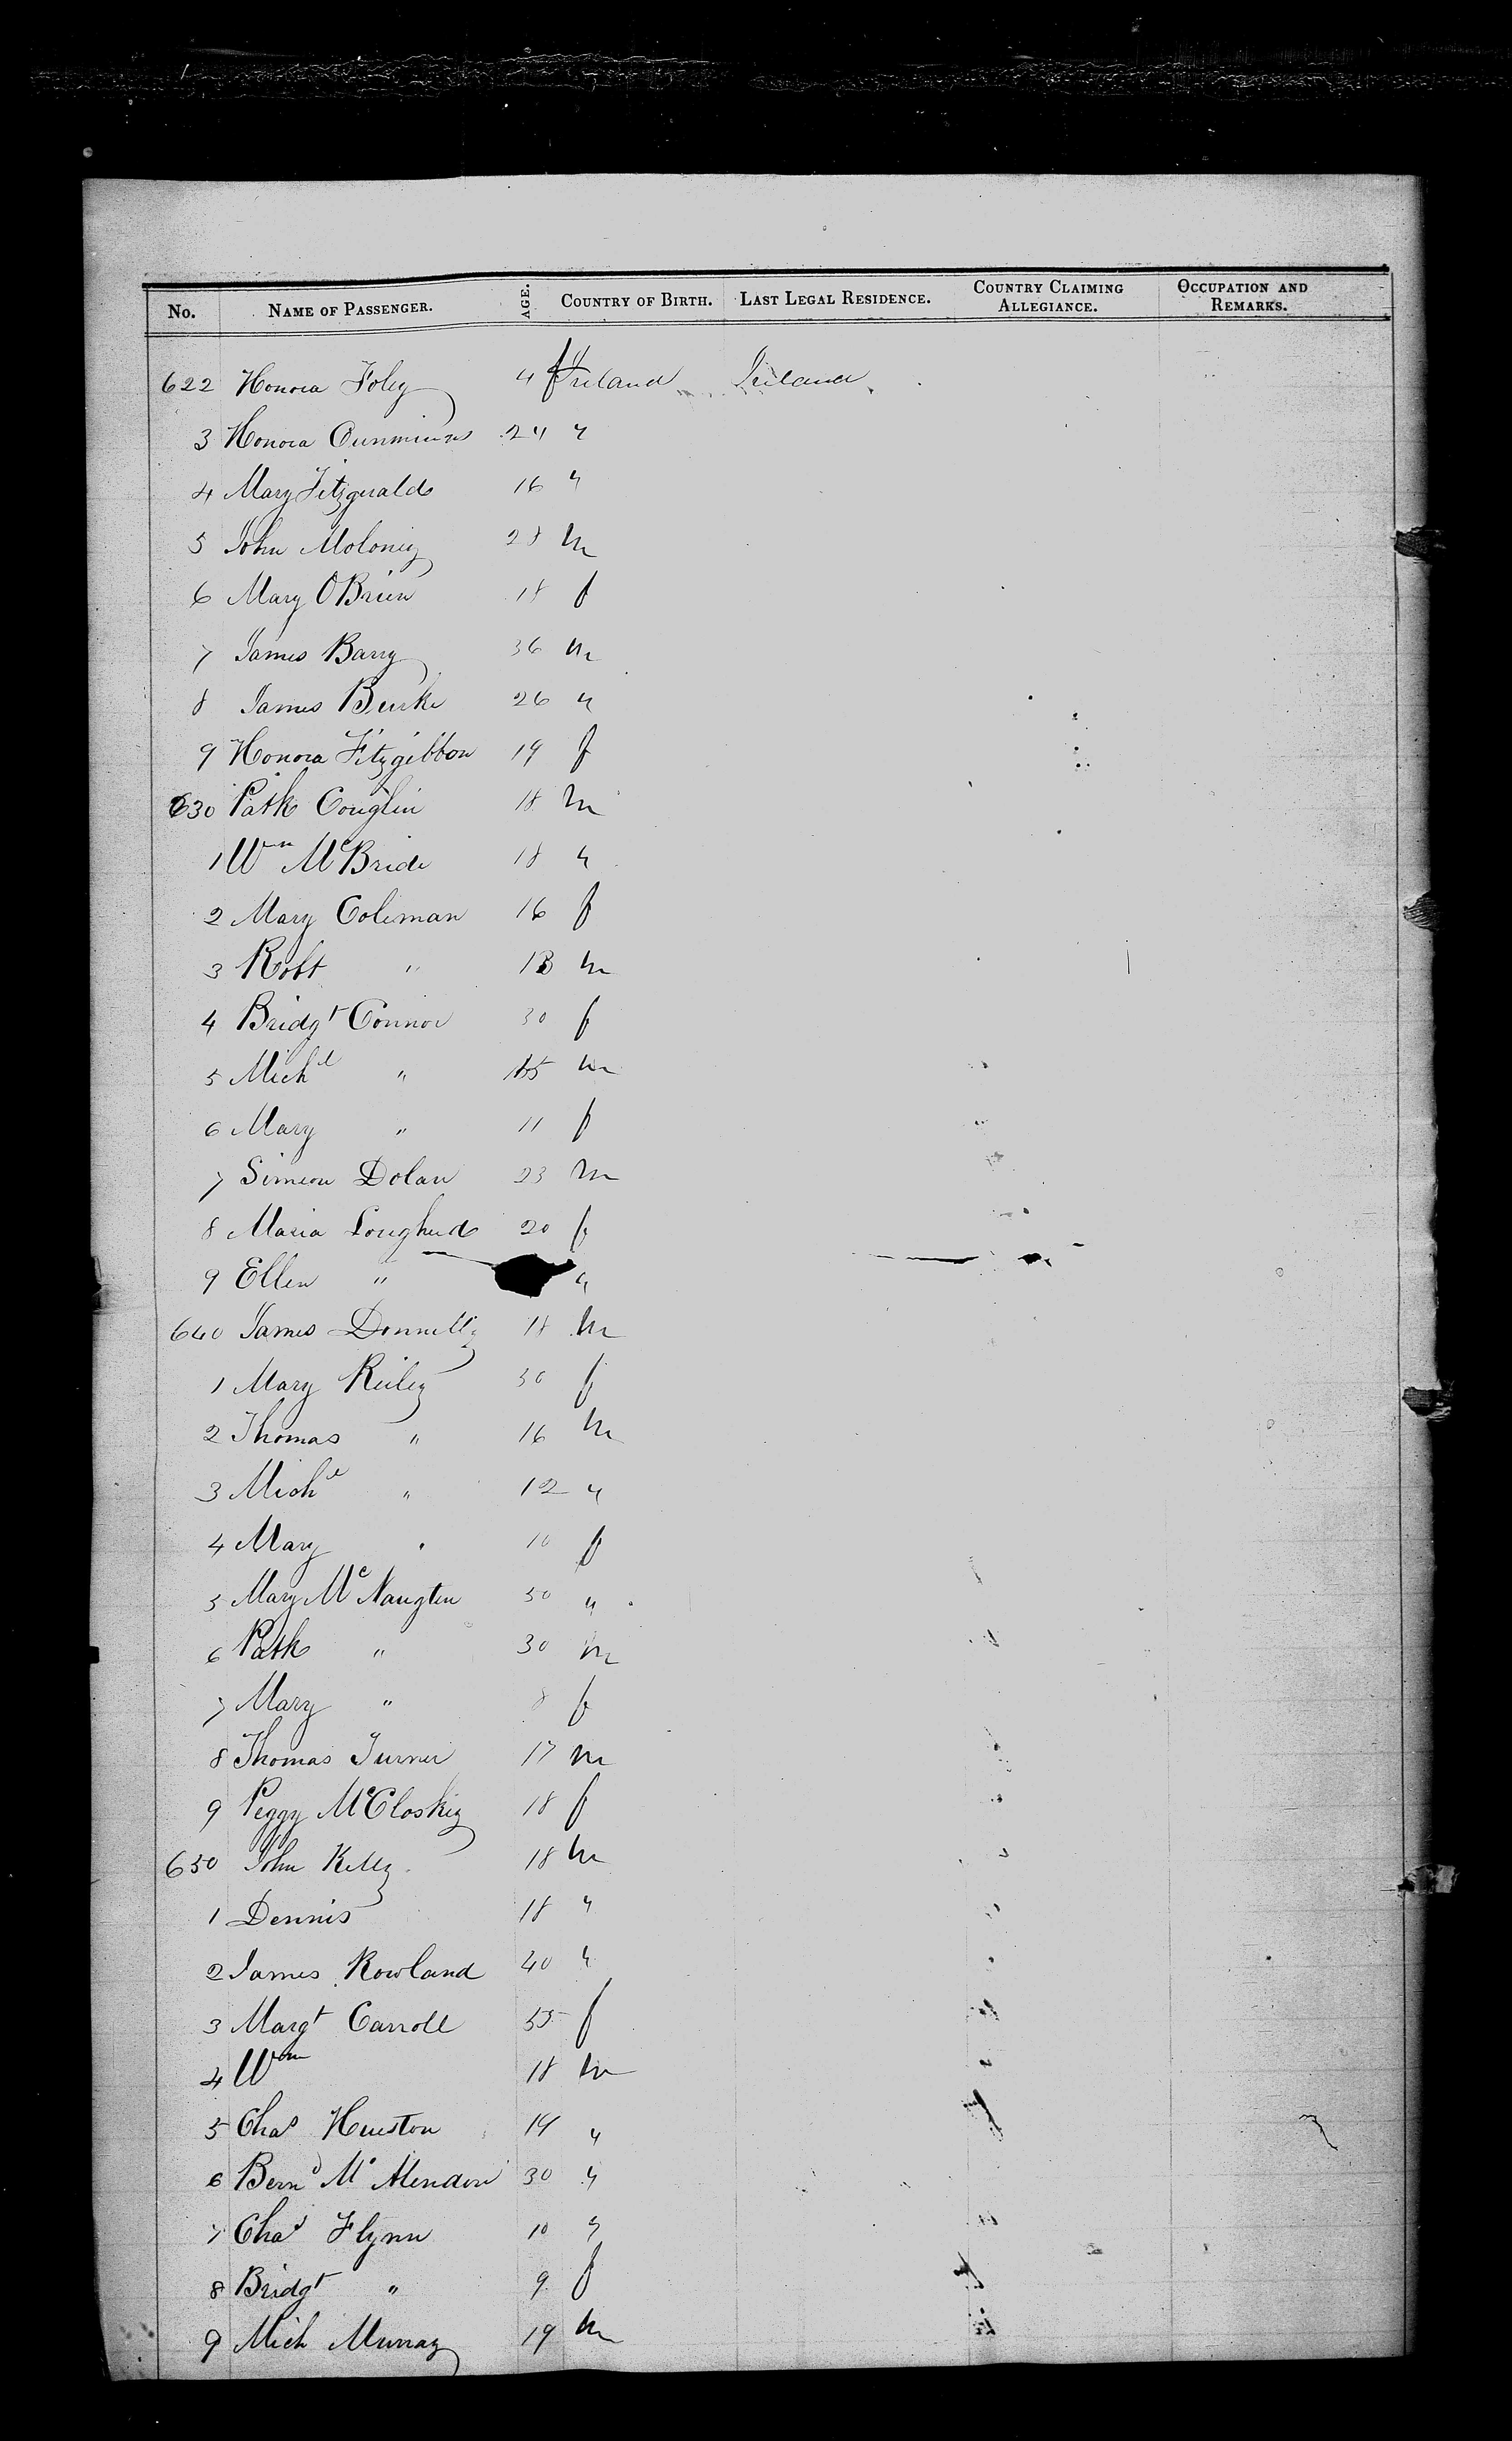 No. NAME OF PASSENGER. AGE. COUNTRY OF BIRTH. LAST LEGAL RESIDENCE. COUNTRY CLAIMING ALLEGIANCE. OCCUPATION AND REMARKS.
622 Honora Foley 4 f Ireland Ireland
3 Honora Cummins 24 "
4 Mary Fitzgerald 16 "
5 John Moloney 28 m
6 Mary OBrien 18 f
7 James Barry 36 m
8 James Burke 26 "
9 Honora Fitzgibbon 19 f
630 Patk Couglin 18 m
1 Wm McBride 18 "
2 Mary Coleman 16 f
3 Robt " 13 m
4 Bridgt Connor 30 f
5 Michl " 15 m
6 Mary " 11 f
7 Simeon Dolan 23 m
8 Maria Loughed 20 f
9 Ellen " "
640 James Donnelly 18 m
1 Mary Reiley 30 f
2 Thomas " 16 m
3 Michl " 12 "
4 Mary " 10 f
5 Mary McNaugten 50 "
6 Patk " 30 m
7 Mary " 8 f
8 Thomas Turner 17 m
9 Peggy McCloskey 18 f
650 John Kelly 18 m
1 Dennis 18 "
2 James Rowland 40 "
3 Margt Carroll 55 f
4 Wm 18 m
5 Chas Hueston 19 "
6 Bernd Mc 30 "
7 Chas Flynn 10 "
8 Bridgt " 9 f
9 Mich Murray 19 m